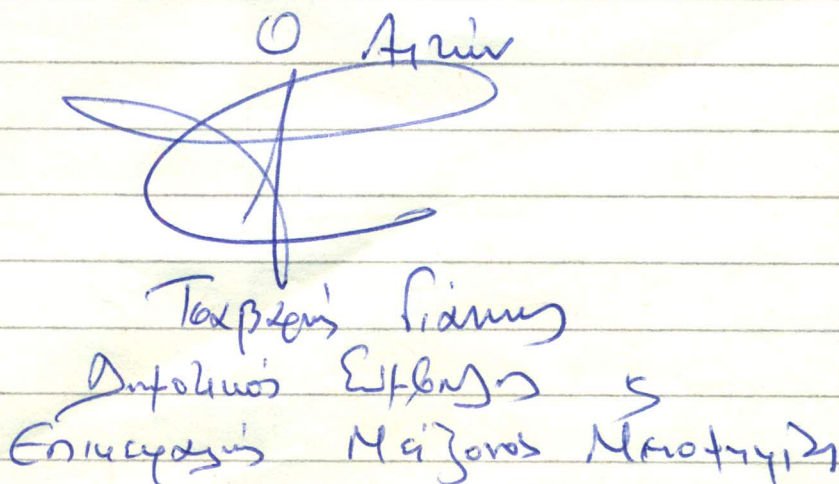 Ο Αιτών
Τσαβαρής Γιάννης
Δημοτικός Σύμβουλος
Επικεφαλής Μείζονος Μειοψηφίας